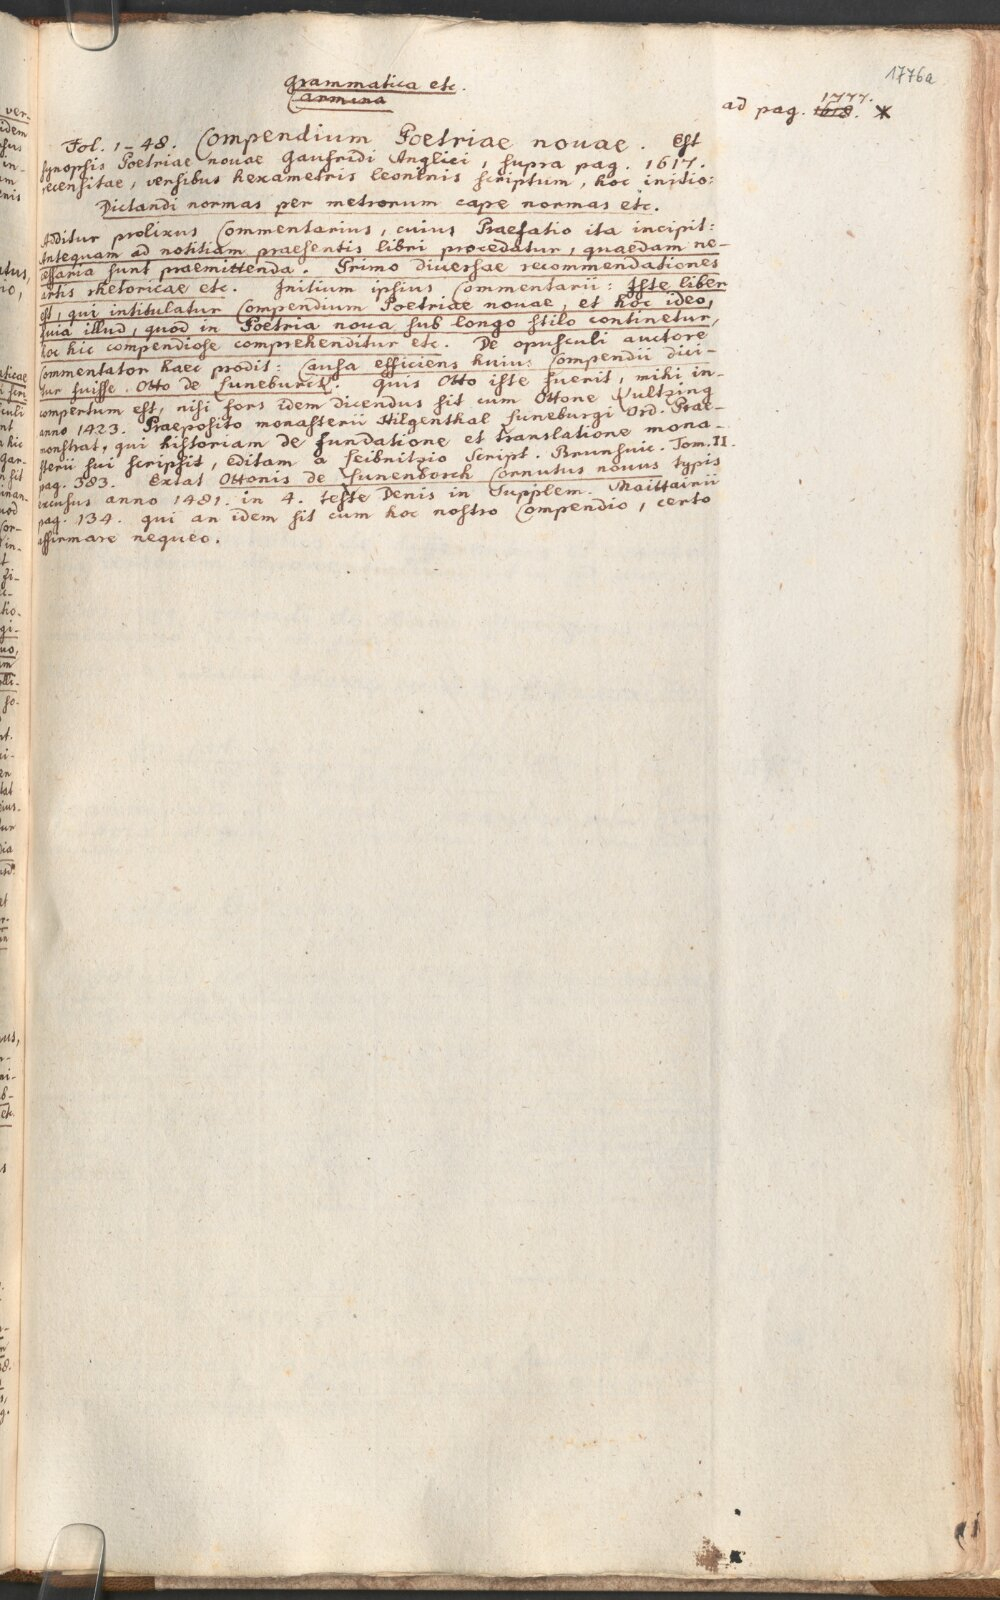 1776a
Grammatica etc.
Carmina
1777.
ad pag. 1618. *
Fol. 1–48. Compendium Poetriae nouae. Est
synopsis Poetriae nouae Gaufridi Anglici, supra pag. 1617.
recensitae, versibus hexametris leoninis scriptum, hoc initio:
Dictandi normas per metrorum cape normas etc.
Additur prolixus Commentarius, cuius Praefatio ita incipit:
Antequam ad notitiam praesentis libri procedatur, quaedam ne-
cessaria sunt praemittenda. Primo diuersae recommendationes
artis rhetoricae etc. Initium ipsius Commentarii: Iste liber
est, qui intitulatur Compendium Poetriae nouae, et hoc ideo,
quia illud, quod in Poetria noua sub longo stilo continetur,
hoc hic compendiose comprehenditur etc. De opusculi auctore
Commentator haec prodit: Causa efficiens huius Compendii dici-
tur fuisse Otto de Luneburck. Quis Otto iste fuerit, mihi in-
compertum est, nisi fors idem dicendus sit cum Ottone
anno 1423. Praeposito monasterii Hilgenthal Luneburgi Ord. Prae-
monstrat, qui historiam de fundatione et translatione mona-
sterii sui scripsit, editam a Leibnitzio Script. Brunsuic. Tom. II
pag. 383. Extat Ottonis de Lunenborch Cornutus nouus typis
excusus anno 1481. in 4. teste Denis in Supplem. Maittairii
pag. 134. qui an idem sit cum hoc nostro Compendio, certo
affirmare nequeo.